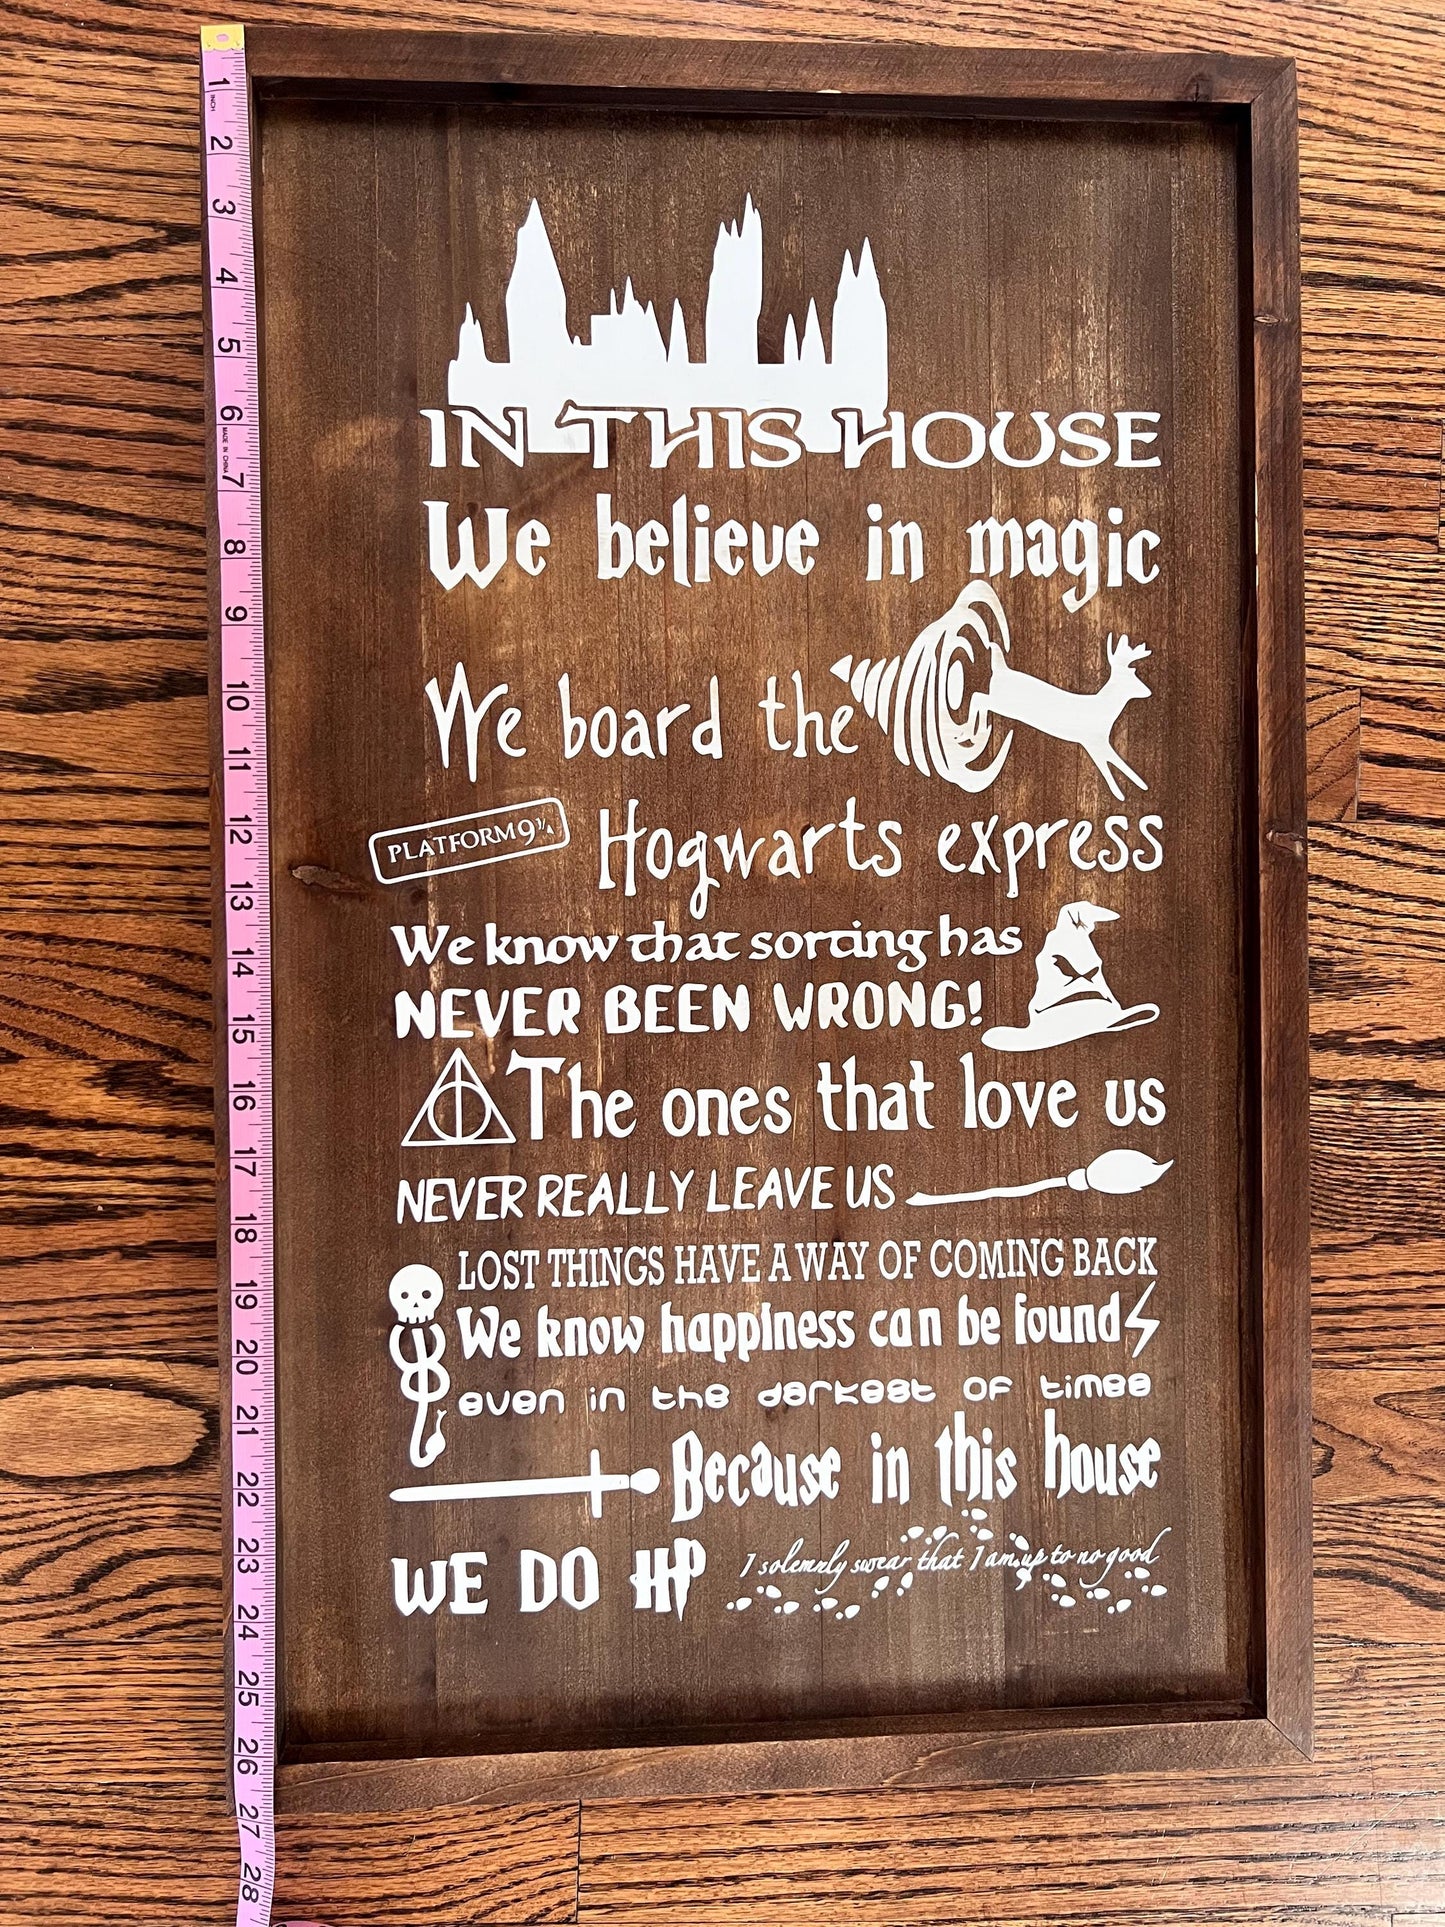 IN THIS HOUSE
We believe in magic
We board the
PLATFORM 9 ¾
Hogwarts express
We know that sorting has
NEVER BEEN WRONG!
The ones that love us
NEVER REALLY LEAVE US
LOST THINGS HAVE A WAY OF COMING BACK
We know happiness can be found
even in the darkest of times
Because in this house
WE DO HP
I solemnly swear that I am up to no good
1
INCH
2
3
4
5
6
MADE IN CHINA
7
8
9
10
11
12
13
14
15
16
17
18
19
20
21
22
23
24
25
26
27
28